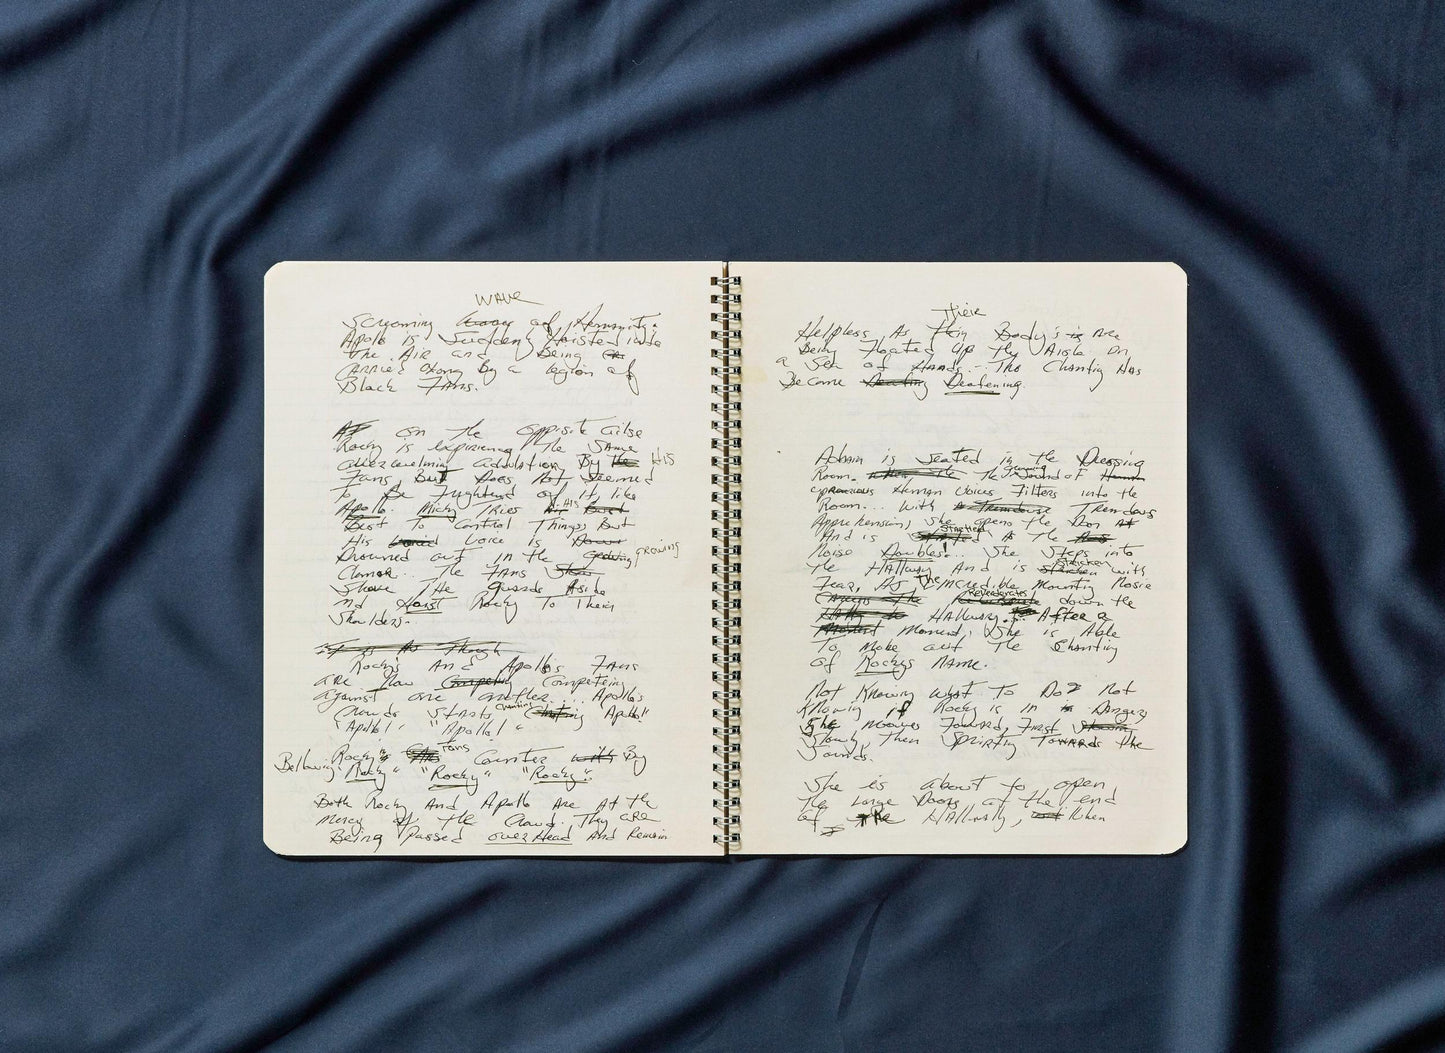 wave
Screaming of Humanity.
Apollo is Suddenly Hoisted into
the Air and Being
carried along By a legion of
Black Fans.
on the opposite aisle
Rocky is experiencing the same
adulation By the HIS
Fans But Does Not Seemed
to Be Frightend of it, like
Apollo. Micky Tries His
Best To Control Things, But
His voice is
Drowned out in the growing growing
Clamor... The Fans
Shove The guards Aside
and Hoist Rocky To Their
Shoulders..
It is As Though
Rocky's And Apollo's Fans
are Now Competing
against one another... Apollo's
Crowds Starts chanting "Apollo!"
"Apollo!" "Apollo!"
Rocky's Fans Counter with By
Bellowing "Rocky" "Rocky" "Rocky"..
Both Rocky And Apollo Are At the
mercy of the Crowd. They are
Being Passed over Head And Remain
Their
Helpless As They Body's is Are
Being Floated Up the Aisle on
a Sea of Hands.. The Chanting Has
Become Deafening.
Adrain is Seated in the Dressing
Room. The Sound of Human
Human Voices Filters into the
Room... With Tremendous
Apprehension, She opens the Door
And is startled As The
Noise Doubles!... She Steps into
the Hallway And is stricken with
Fear, As The Incredible mounting Nosie
Reverberates down the
Hallway... After a
Moment Moment, She is Able
To Make out The Chanting
of Rockys Name.
Not Knowing what To Do? Not
Knowing if Rocky is in Danger
She moves Forward, First
Slowly, Then Sprinting Towards the
Sounds.
She is about to open
the Large Doors at the end
of the Hallway, When